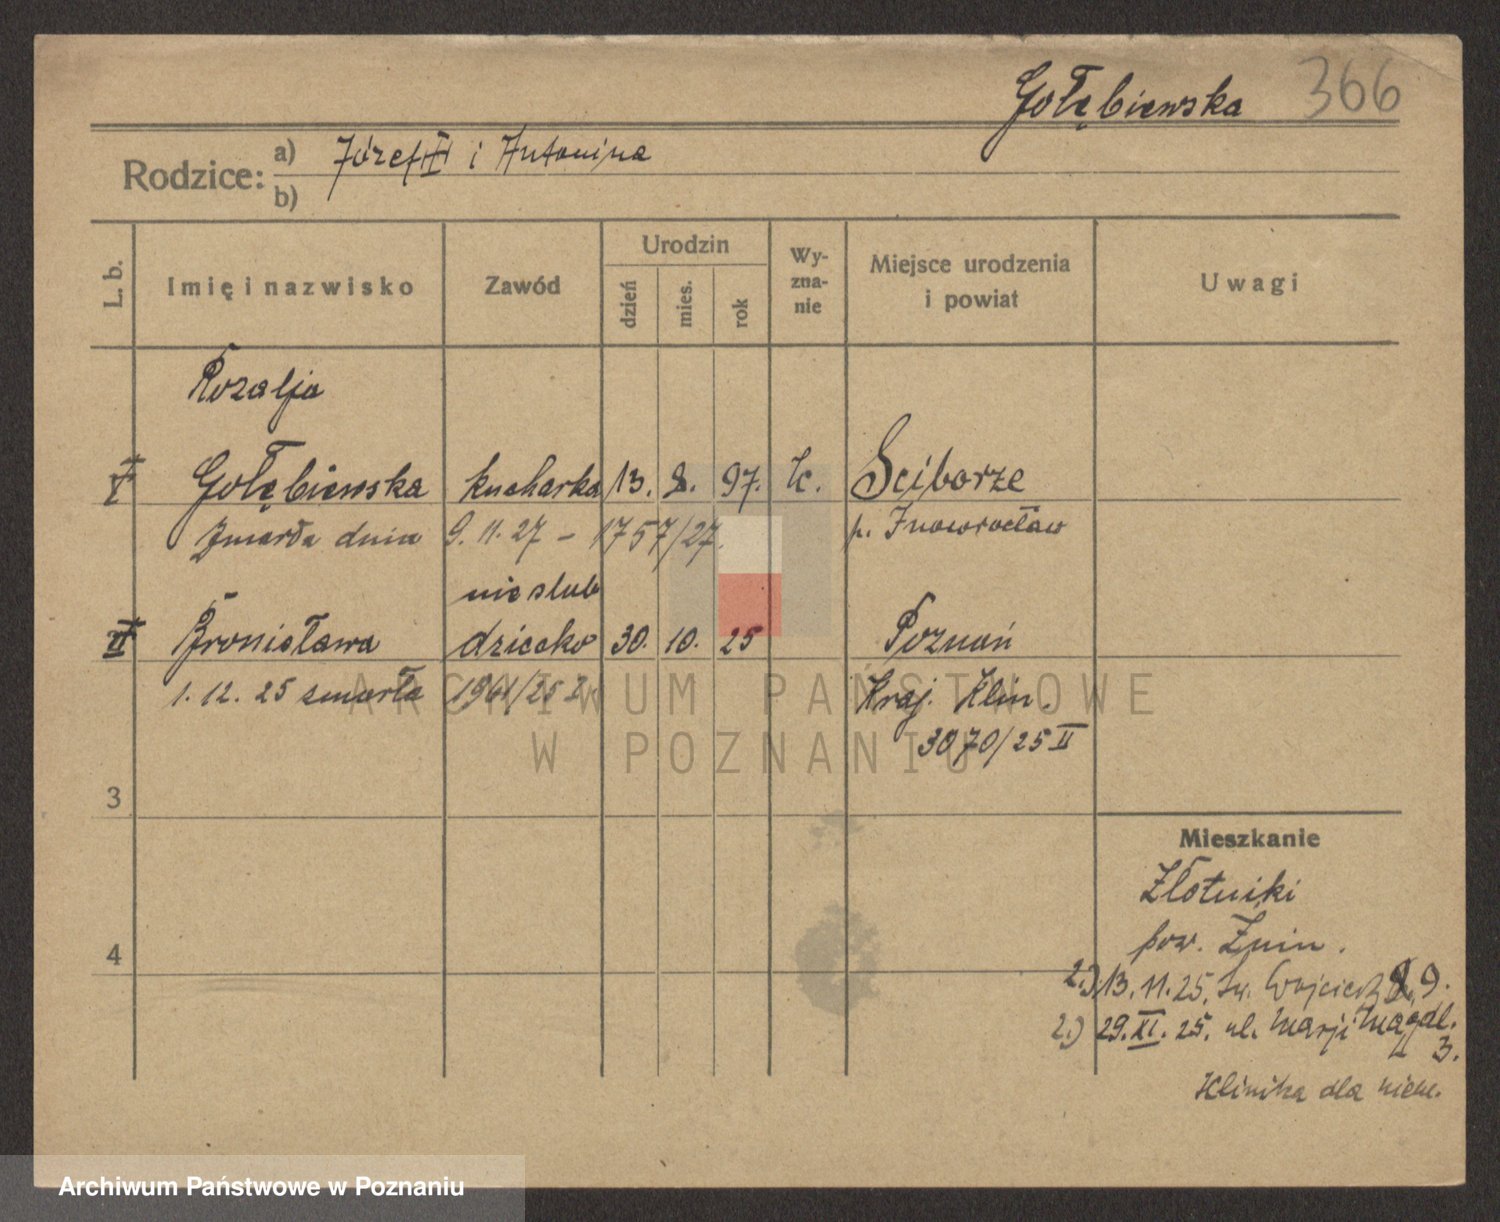 Gołębiewska 366
Rodzice:
a) Józef I i Antonina
b)
L. b.
Imię i nazwisko
Zawód
Urodzin
dzień
mies.
rok
Wy-
zna-
nie
Miejsce urodzenia
i powiat
Uwagi
Rozalja
I Gołębiewska kucharka 13. 8. 97. k. Sciborze
Zmarła dnia 9. 11. 27 – 1757/27. p. Inowrocław
nieslub
II Bronisława dziecko 30. 10. 25 Poznań
1. 12. 25 zmarła 1961/25 Kraj. Klin.
3070/25 II
ARCHIWUM PAŃSTWOWE
W POZNANIU
3
Mieszkanie
Złotniki
4
pow. Żnin.
2.) 13. 11. 25. Św. Wojciech 9.
2.) 29. XI. 25. ul. Marji Magdl.
3.
Klinika dla niew.
Archiwum Państwowe w Poznaniu